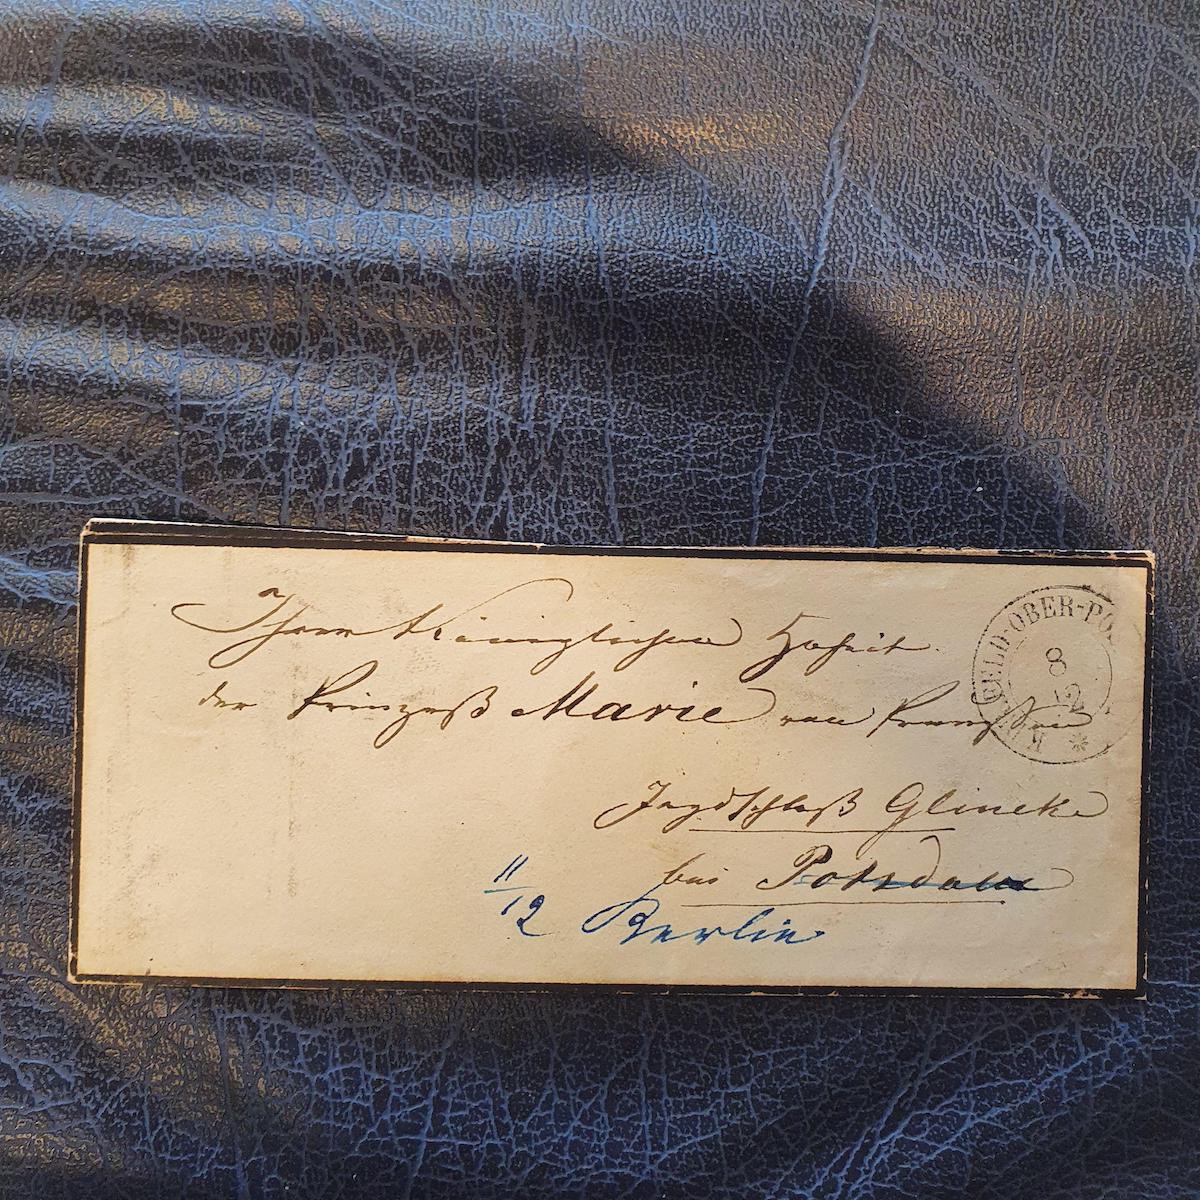 Ihrer Königlichen Hoheit
der Prinzeß Marie von Preußen
Jagdschloß Glineke
bei Potsdam
11/12 Berlin
FELD-OBER-PO
8
12